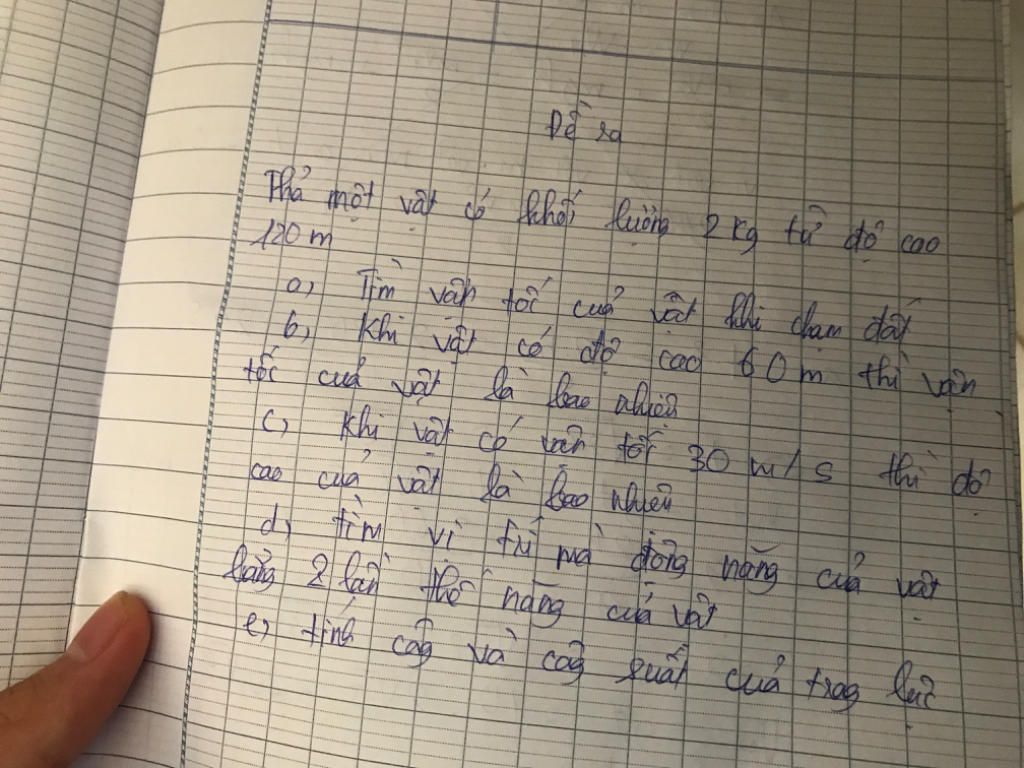 Đề ra
Thả một vật có khối lượng 2 kg từ độ cao
120 m
a, Tìm vận tốc của vật khi chạm đất
b, Khi vật có độ cao 60 m thì vận
tốc của vật là bao nhiêu
c, Khi vật có vận tốc 30 m/s thì độ
cao của vật là bao nhiêu
d, tìm vị trí mà động năng của vật
bằng 2 lần thế năng của vật
e, tính côg và côg suất của trọg lực